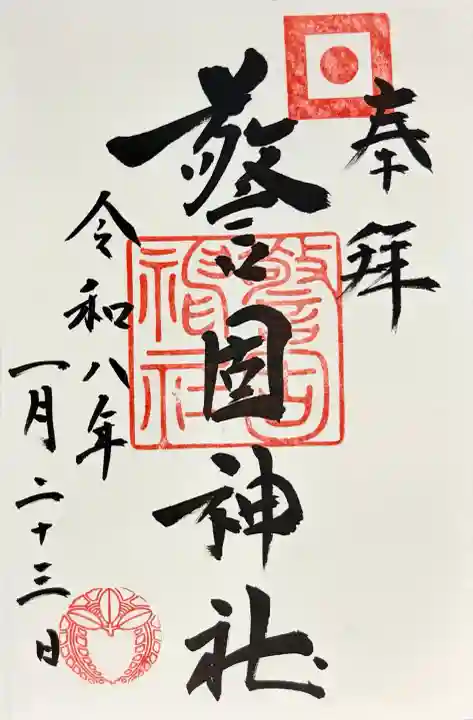 奉拝
警固神社
警固
神社
令和八年
一月二十三日